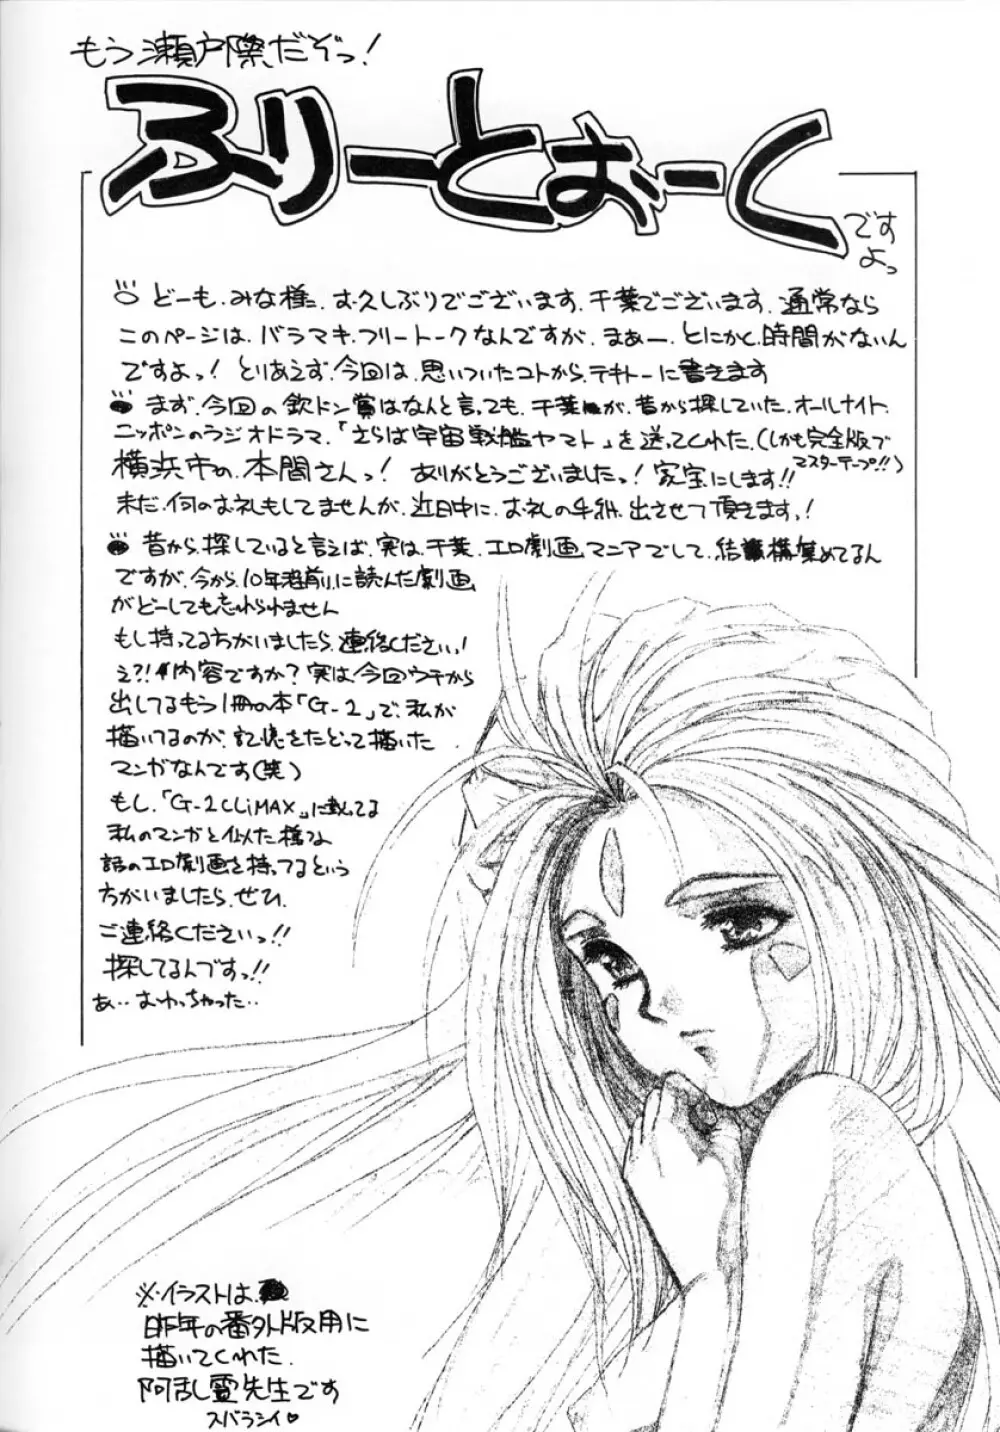 もう瀬戸際だぞっ!
ふりーとぉーく
ですよっ
どーも、みな様、お久しぶりでございます、千葉でございます、通常なら
このページは、バラマキ、フリートークなんですが、まぁー、とにかく、時間がないん
ですよっ! とりあえず、今回は、思いついたコトから、テキトーに書きます
まず、今回の欽ドン賞はなんと言っても、千葉が、昔から探していた、オールナイト、
ニッポンのラジオドラマ、「さらば宇宙戦艦ヤマト」を送ってくれた、(しかも完全版で
マスターテープ!!)
横浜市の、本間さんっ! ありがとうございましたっ! 家宝にします!!
まだ、何のお礼もしてませんが、近日中に、お礼の手紙、出させて頂きますっ!
昔から、探していると言えば、実は、千葉、エロ劇画マニアでして、結構集めてるん
ですが、今から、10年程前に読んだ劇画
がどーしても忘れられません
もし持ってる方がいましたら、連絡くださいっ!
え?!内容ですか?実は、今回ウチから
出してるもう1冊の本「G-2」で、私が
描いてるのが、記憶をたどって描いた
マンガなんです(笑)
もし、「G-2 CLiMAX」に載ってる
私のマンガと似た様な
話のエロ劇画を持ってるという
方がいましたら、ぜひ、
ご連絡くださいっ!!
探してるんですっ!!
あ‥おわっちゃった‥
※イラストは、
昨年の番外版用に
描いてくれた、
阿乱霊先生です
スバラシイ♡